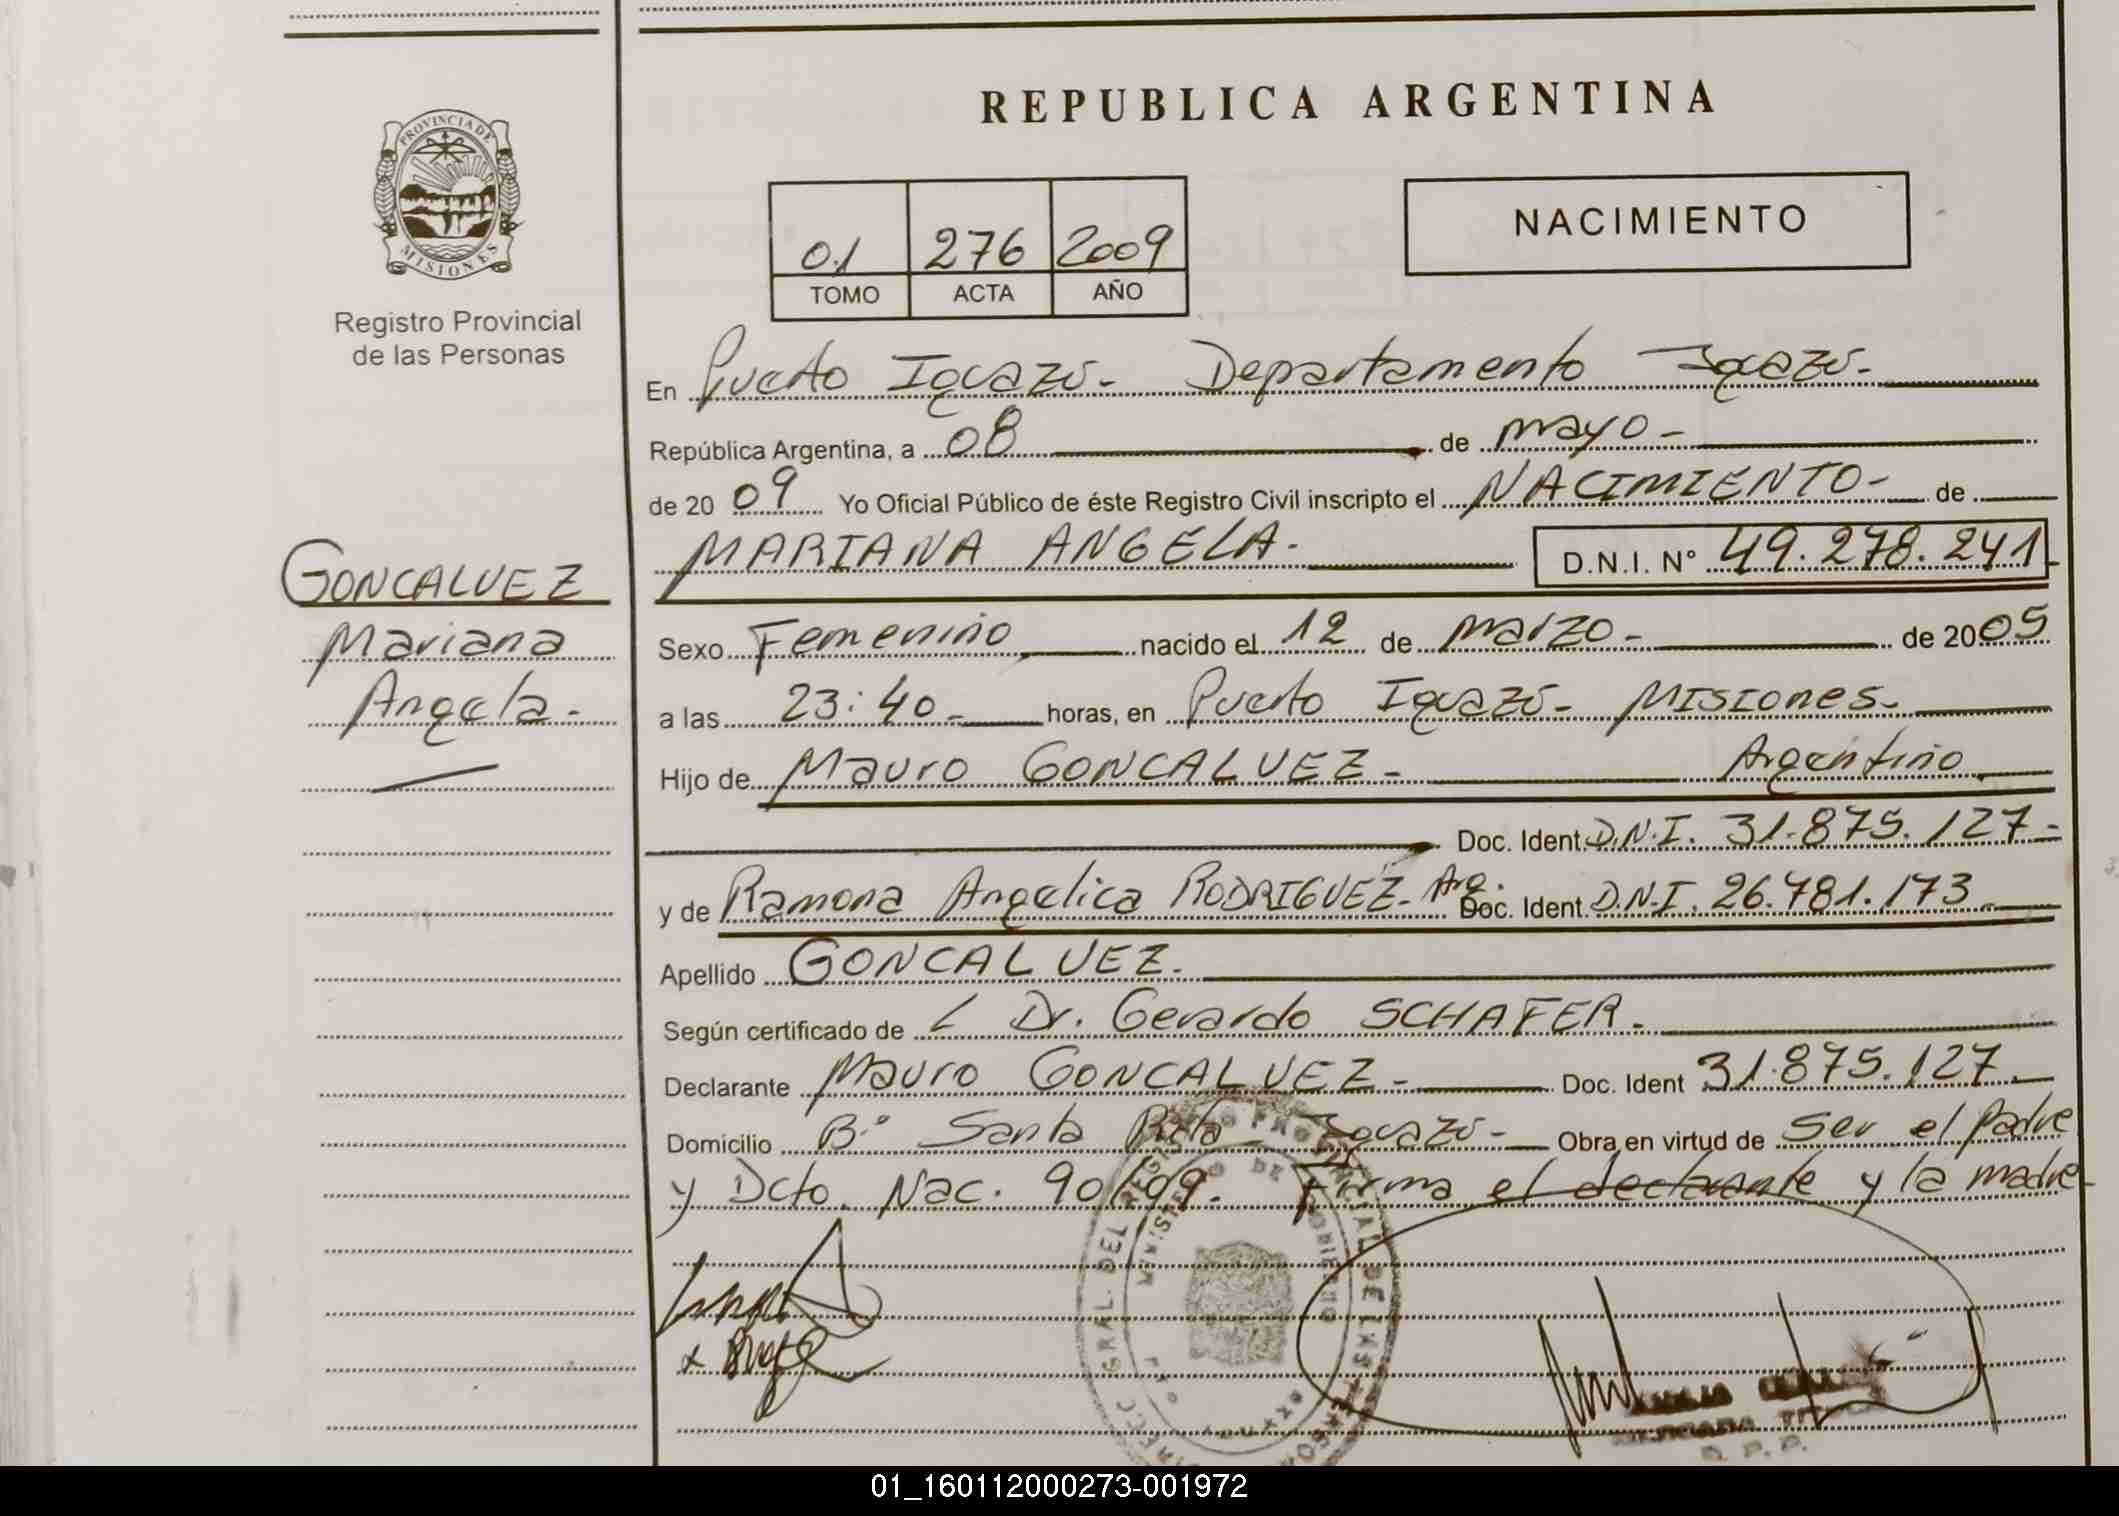 REPUBLICA ARGENTINA
PROVINCIA DE
MISIONES
Registro Provincial
de las Personas
01 276 2009
TOMO ACTA AÑO
NACIMIENTO
En Puerto Iguazú- Departamento Iguazú-
República Argentina, a 08 de mayo-
de 2009 Yo Oficial Público de éste Registro Civil inscripto el NACIMIENTO- de
MARIANA ANGELA- D.N.I. N° 49.278.241
GONCALVEZ
Mariana
Angela-
Sexo Femenino nacido el 12 de marzo- de 2005
a las 23:40- horas, en Puerto Iguazú- Misiones-
Hijo de Mauro GONCALVEZ- Argentino
Doc. Ident. D.N.I. 31.875.127-
y de Ramona Angelica RODRIGUEZ- Arg. Doc. Ident. D.N.I. 26.781.173
Apellido GONCALVEZ.
Según certificado de Dr. Gerardo SCHAFER.
Declarante Mauro GONCALVEZ- Doc. Ident 31.875.127
Domicilio B° Santa Rita- Iguazú- Obra en virtud de ser el padre
y Dcto. Nac. 90/09. Firma el declarante y la madre-
DIRECC. GRAL. DEL REGISTRO PROVINCIAL DE LAS PERSONAS
MINISTERIO DE GOBIERNO
01_160112000273-001972